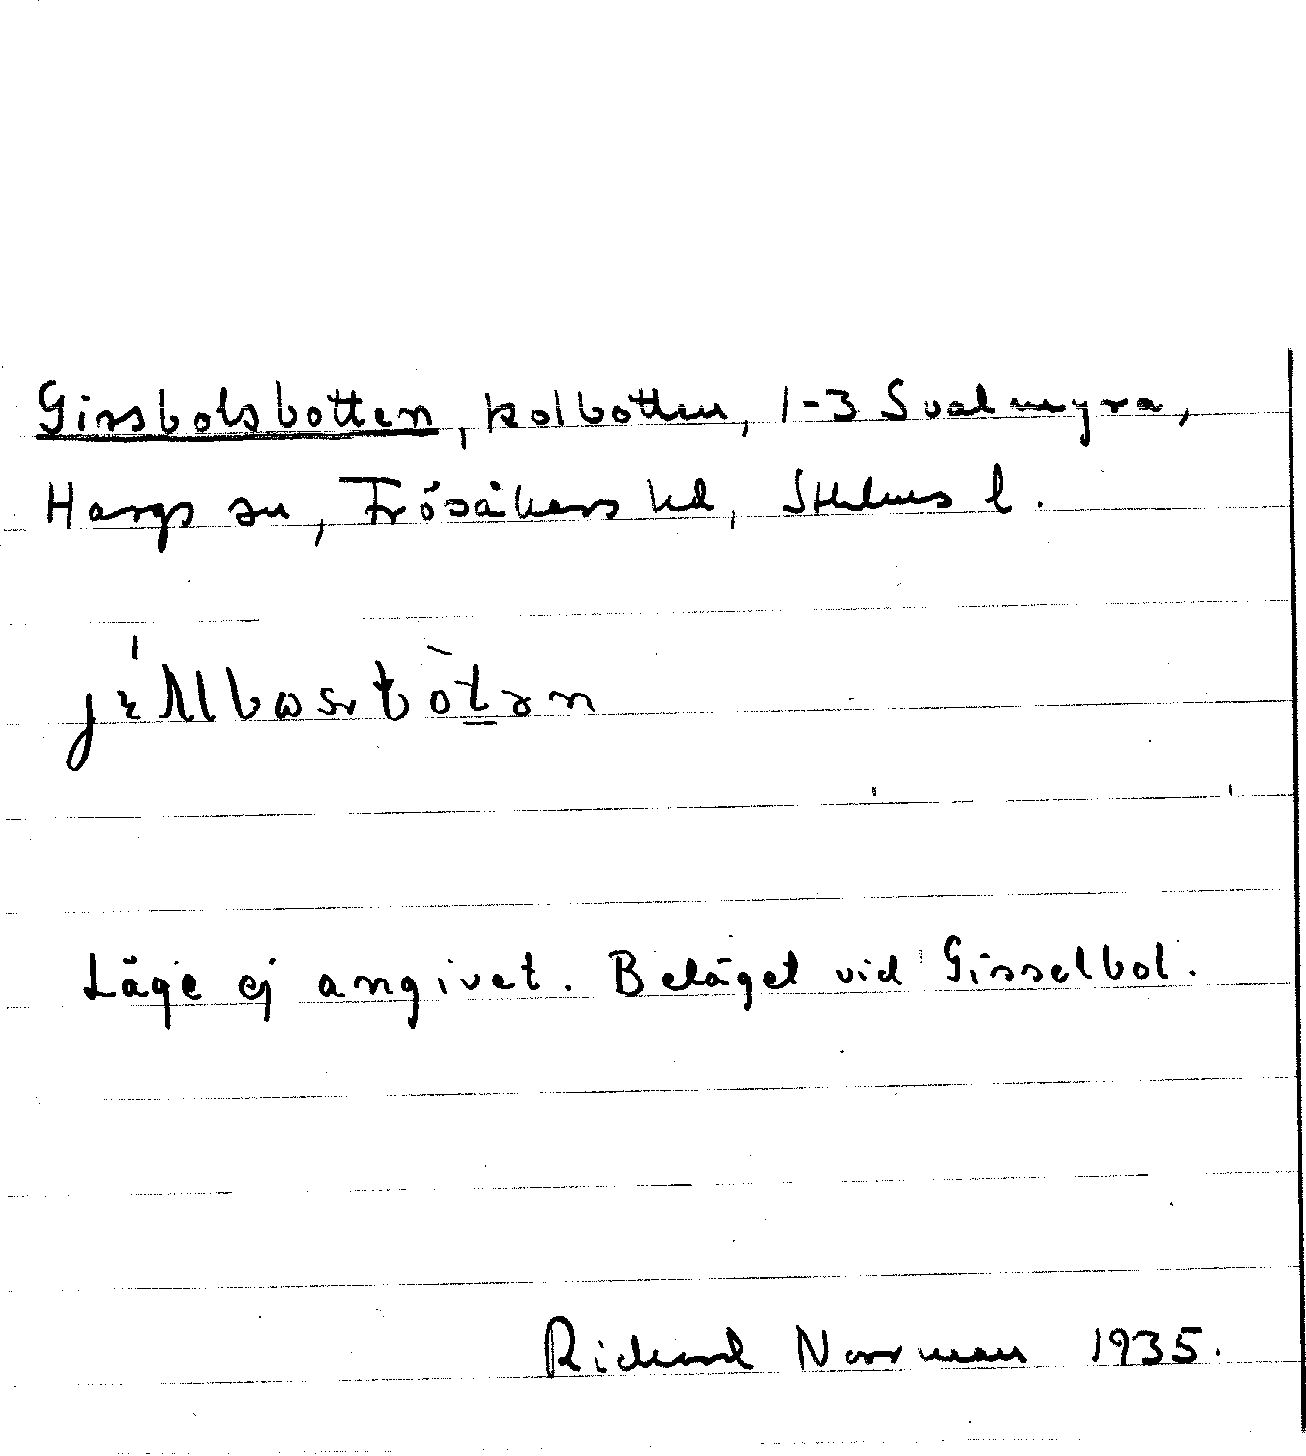 Girsbolsbotten, kolbotten, 1-3 Svalmyra,
Hargs sn, Frösåkers hd, Sthlms l.
Läge ej angivet. Beläget vid Gisselbol.
Richard Norrman 1935.